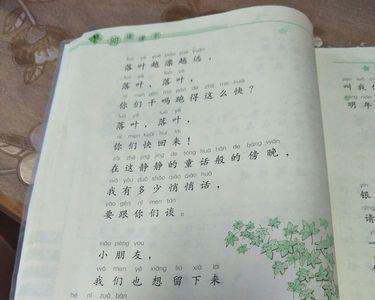 阅读课本
luò yè yuè piāo yuè yuǎn
落叶越漂越远，
luò yè luò yè
落叶，落叶，
nǐ men gàn má pǎo de zhè me kuài
你们干吗跑得这么快？
luò yè luò yè
落叶，落叶，
nǐ men kuài huí lái
你们快回来！
zài zhè jìng jìng de tóng huà bān de bàng wǎn
在这静静的童话般的傍晚，
wǒ yǒu duō shǎo qiāo qiāo huà
我有多少悄悄话，
yào gēn nǐ men tán
要跟你们谈。
xiǎo péng you
小朋友，
wǒ men yě xiǎng liú xià lái
我们也想留下来
hé nǐ zuò bàn
叫我
明年
yín
银
qǐng
请